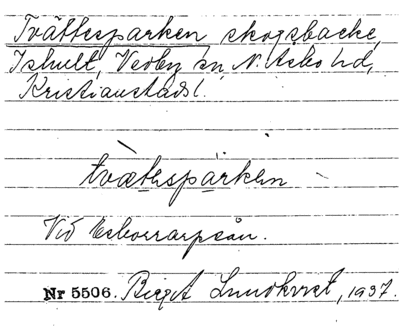 Tvättesparken skogsbacke,
Ishult, Verby sn, N. Åsbo hd,
Kristianstads l.
tvætesparken
Vid
Nr 5506. Birgit Lundkvist, 1937.